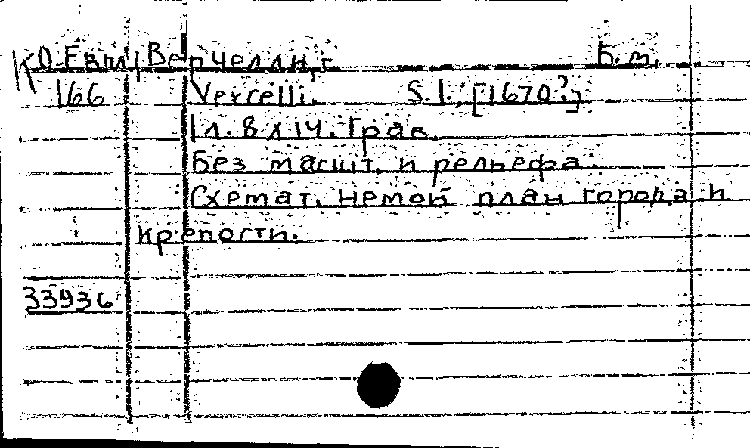 КО Евпл/ Верчелли, г. Б.м.
166 Vercelli. S.l., [1670?]
1 л. 8 х 14. Грав.
Без масшт. и рельефа.
Схемат. немой план города и
крепости.
33936